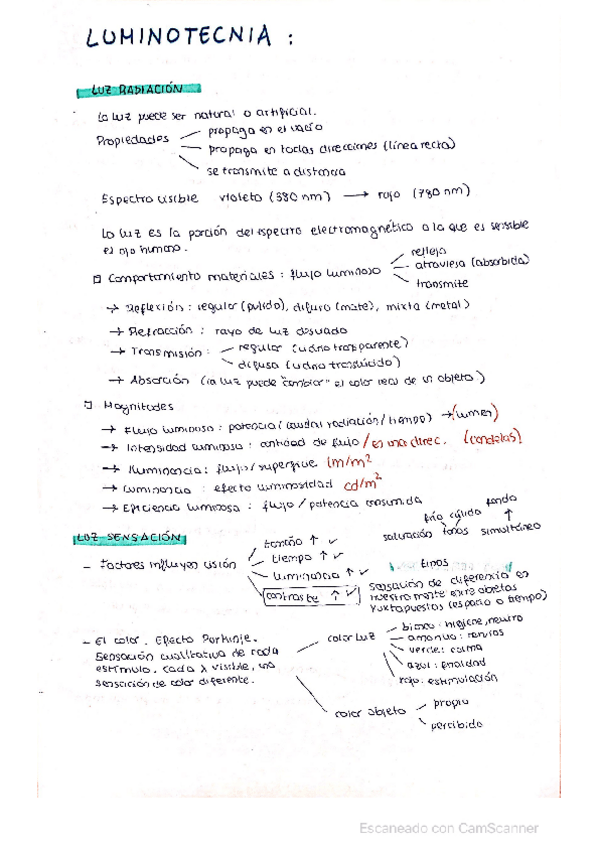 LUMINOTECNIA :
LUZ RADIACIÓN
La luz puede ser natural o artificial.
Propiedades
propaga en el vacío
propaga en todas direcciones (línea recta)
se transmite a distancia
Espectro visible violeta (380 nm) → rojo (780 nm)
La luz es la porción del espectro electromagnético a la que es sensible
el ojo humano.
Comportamiento materiales : flujo luminoso
refleja
atraviesa (absorbida)
transmite
→ Reflexión : regular (pulido), difuso (mate), mixta (metal)
→ Refracción : rayo de luz desviado
→ Transmisión :
regular (vidrio transparente)
difusa (vidrio translúcido)
→ Absorción (la luz puede "cambiar" el color real de un objeto)
Magnitudes
→ Flujo luminoso : potencia (caudal radiación / tiempo) → (lumen)
→ Intensidad luminosa : cantidad de flujo / en una direc. (candelas)
→ Iluminancia : flujo / superficie lm/m²
→ Luminancia : efecto luminosidad cd/m²
→ Eficiencia luminosa : flujo / potencia consumida
LUZ SENSACIÓN
- Factores influyen visión
tamaño ↑ ✓
tiempo ↑ ✓
luminancia ↑ ✓
contraste ↑ ✓
frío cálido fondo
saturación tonos simultáneo
tipos
sensación de diferencia en
nuestra mente entre objetos
yuxtapuestos (espacio o tiempo)
- El color. Efecto Purkinje.
Sensación cualitativa de cada
estímulo. Cada λ visible, una
sensación de color diferente.
color luz
blanco : higiene, neutro
amarillo : nervios
verde : calma
azul : frialdad
rojo : estimulación
color objeto
propio
percibido
Escaneado con CamScanner